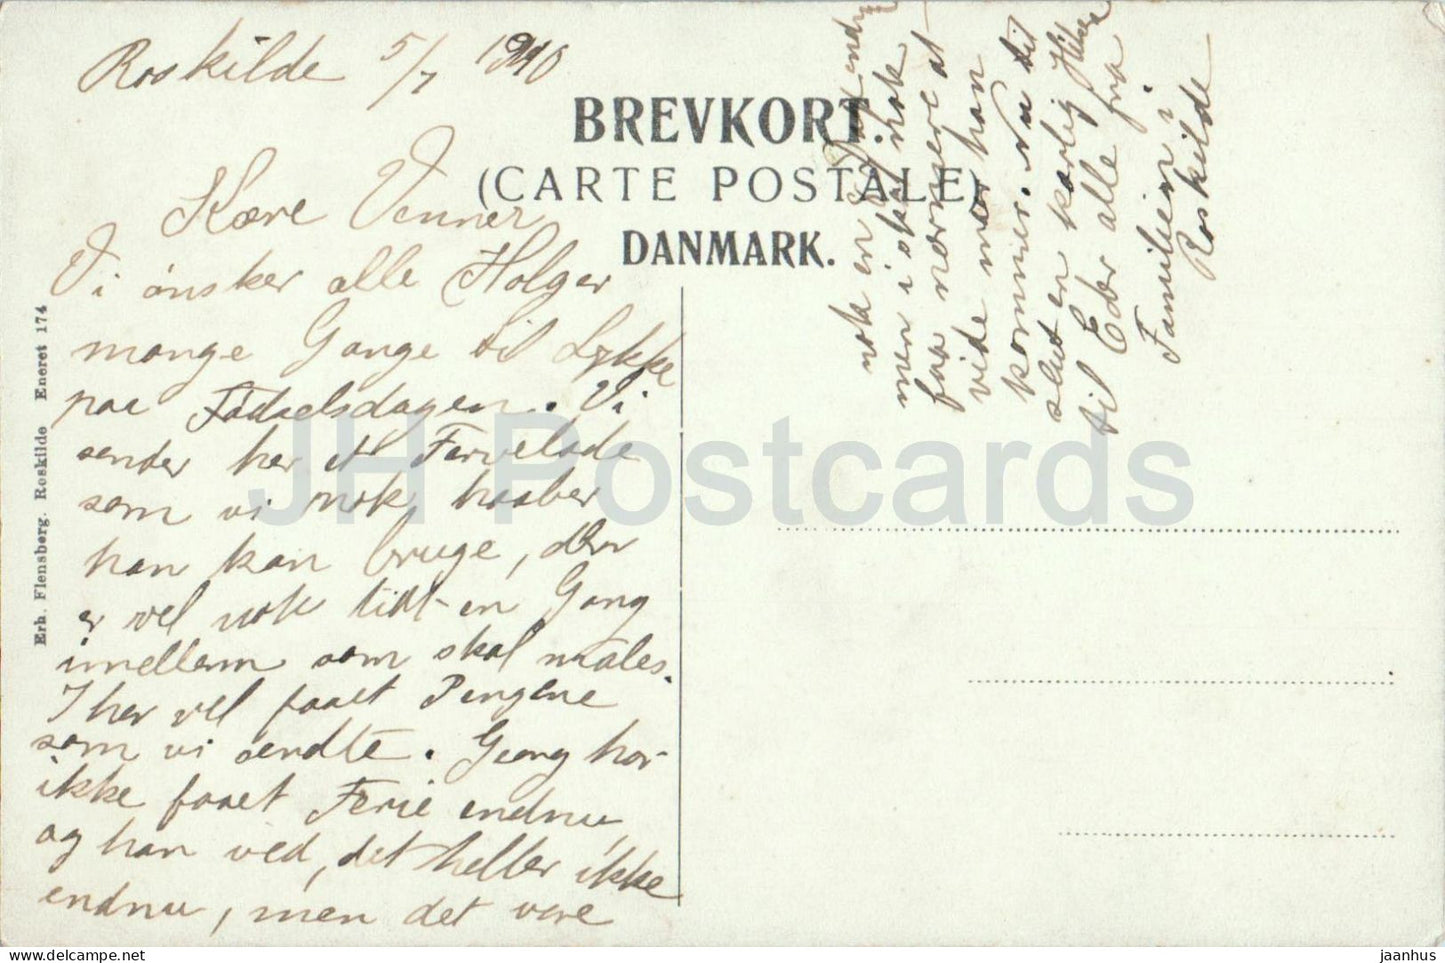 Roskilde 5/7 1910
BREVKORT.
(CARTE POSTALE)
DANMARK.
Kære Venner
Vi ønsker alle Holger
mange Gange til Lykke
paa Fødselsdagen. Vi
sender her et Farvelade
som vi nok haaber
han kan bruge, der
er vel nok tidt en Gang
imellem som skal males.
I har vel faaet Pengene
som vi sendte. Georg har
ikke faaet Ferie endnu,
og han ved det heller ikke
endnu, men det vare
nok en endnu
men i skal nok
faa nærmere at
vide naar han
kommer. Nu til
slut en kærlig Hilsen
til Eder alle fra
Familien i
Roskilde
Erh. Flensborg. Roskilde Eneret 174
JH Postcards
jaanhus